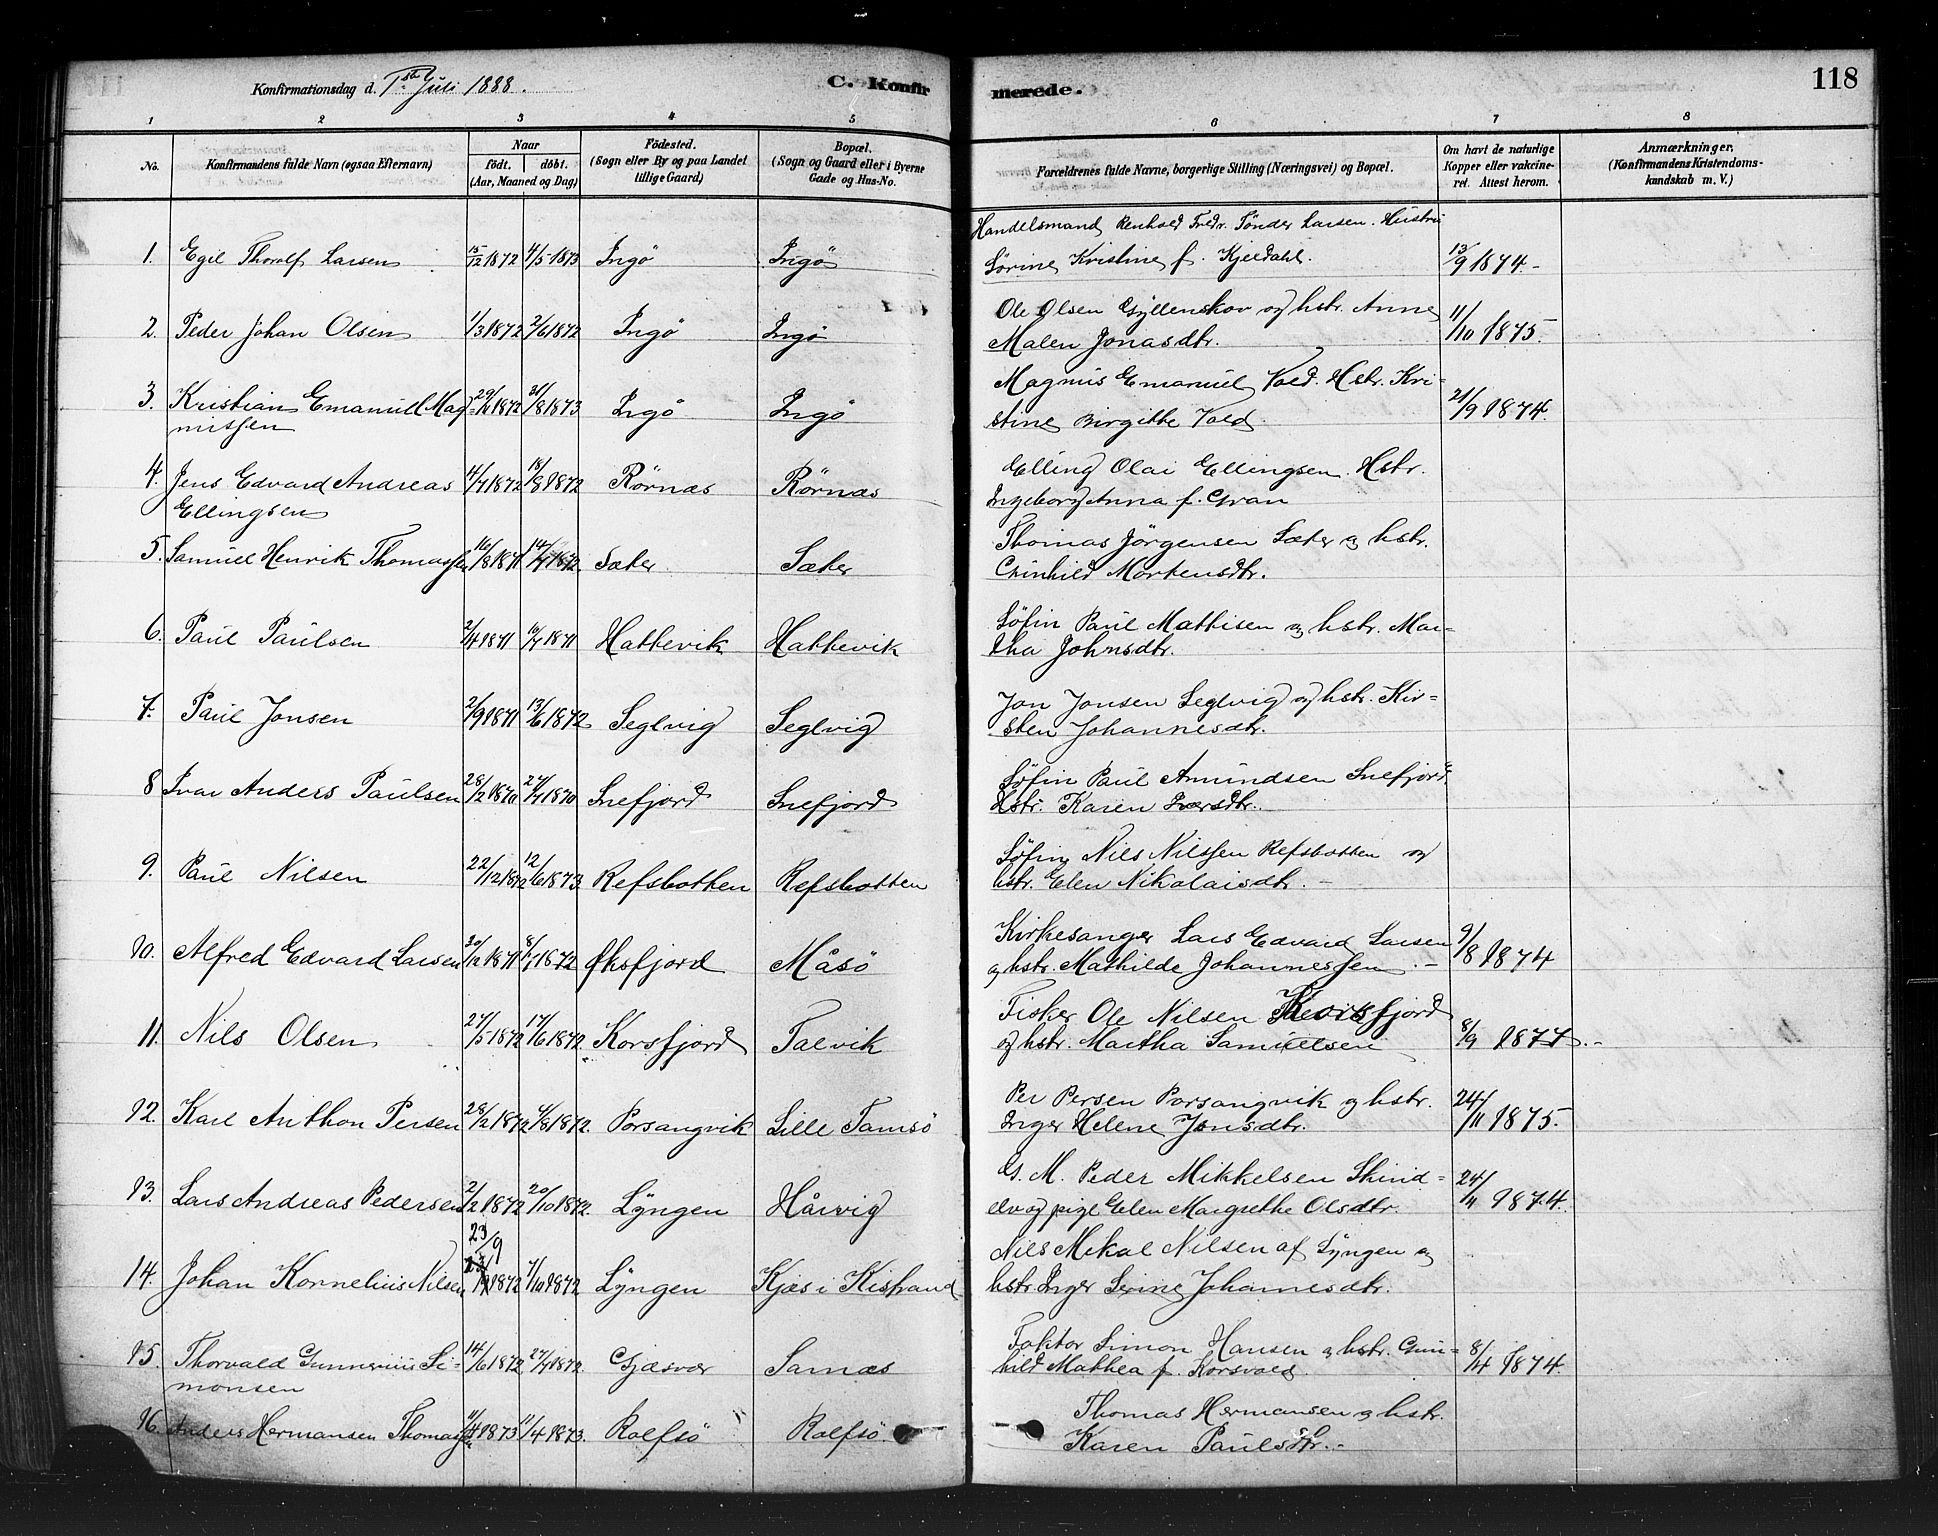 118
Konfirmationsdag d. 1ste Juli 1888.
C. Konfirmerede.
1 2 3 4 5 6 7 8
No. Konfirmandens fulde Navn (ogsaa Efternavn) Naar födt. döbt. (Aar, Maaned og Dag) Födested. (Sogn eller By og paa Landet tillige Gaard) Bopæl. (Sogn og Gaard eller i Byerne Gade og Hus-No. Forældrenes fulde Navne, borgerlige Stilling (Næringsvei) og Bopæl. Om havt de naturlige Kopper eller vakcineret. Attest herom. Anmærkninger. (Konfirmandens Kristendomskundskab m. V.)
Handelsmand Renhold Fredr. Tönder Larsen. Hustru
1. Egil Thoralf Larsen 15/12 1872 4/5 1873 Ingö Ingö Sörine Kristine f. Kjeldahl. 13/9 1874.
2. Peder Johan Olsen 1/3 1872 2/6 1872 Ingö Ingö Ole Olsen Gyllenskov og hstr. Anne
Malen Jonasdtr. 11/10 1875.
3. Kristian Emanuel Mag- 1872 31/8 1873 Ingö Ingö Magnus Emanuel Vold. Hstr. Kri-
nussen stine Birgitte Vold. 21/9 1874.
4. Jens Edvard Andreas 4/7 1872 18/8 1872 Rörnæs Rörnæs Elling Olai Ellingsen. Hstr.
Ellingsen Ingeborg Anna f. Gran
5. Samuel Henrik Thomassen 16/8 1871 14/7 1872 Sæter Sæter Thomas Jörgensen Sæter og hstr.
Gunhild Mortensdtr.
6. Paul Paulsen 2/4 1871 16/7 1871 Hattevik Hattevik Söfin Paul Mathisen og hstr. Mar-
tha Johnsdtr.
7. Paul Jonsen 2/9 1871 13/6 1872 Seglvig Seglvig Jon Jonsen Seglvig og hstr. Kir-
sten Johannesdtr.
8 Ivar Anders Paulsen 28/2 1870 24/7 1870 Snefjord Snefjord Söfin Paul Amundsen Snefjord.
Hstr. Karen Iversdtr.
9. Paul Nilsen 22/12 1872 12/6 1873 Refsbotten Refsbotten Söfin Nils Nilssen Refsbotten og
hstr. Elen Nikolaisdtr.
10. Alfred Edvard Larsen 30/12 1871 8/7 1872 Øksfjord Måsö Kirkesanger Lars Edvard Larsen
og hstr. Mathilde Johannessen. 9/8 1874
11. Nils Olsen 27/5 1872 17/6 1872 Korsfjord Talvik Fisker Ole Nilsen Korsfjord
og hstr. Martha Samuelsen 8/9 1877.
12. Karl Anthon Persen 28/2 1872 4/8 1872. Porsangvik Lille Tamsö Per Persen Porsangvik og hstr.
Inger Helene Jonsdtr. 24/11 1875.
13. Lars Andreas Pedersen 2/2 1872 20/10 1872. Lyngen Hårvig G. M. Peder Mikkelsen Skind-
elv og pige Elen Margrethe Olsdtr. 24/11 1874.
23/9
14. Johan Kornelius Nilsen 1872 7/10 1872. Lyngen Kjæs i Kistrand Nils Mekal Nilsen af Lyngen og
hstr. Inger Serine Johannesdtr.
15. Thorvald Gunnerius Si- 14/6 1872 27/7 1872. Gjæsvær Sarnæs Faktor Simon Hansen og hstr. Gun-
monsen hild Mathea f. Korsvold. 8/4 1874.
16. Anders Hermansen Thomassen 11/4 1873 11/4 1873. Rolfsö Rolfsö. Thomas Hermansen og hstr.
Karen Paulsdtr.